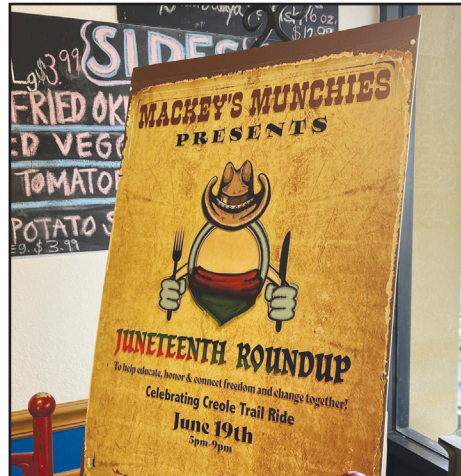 16 oz.
$12.99
SIDES
Lg. $3.99
FRIED
TOMATO
POTATO
$3.99
MACKEY'S MUNCHIES
PRESENTS
JUNETEENTH ROUNDUP
To help educate, honor & connect freedom and change together!
Celebrating Creole Trail Ride
June 19th
5pm-9pm